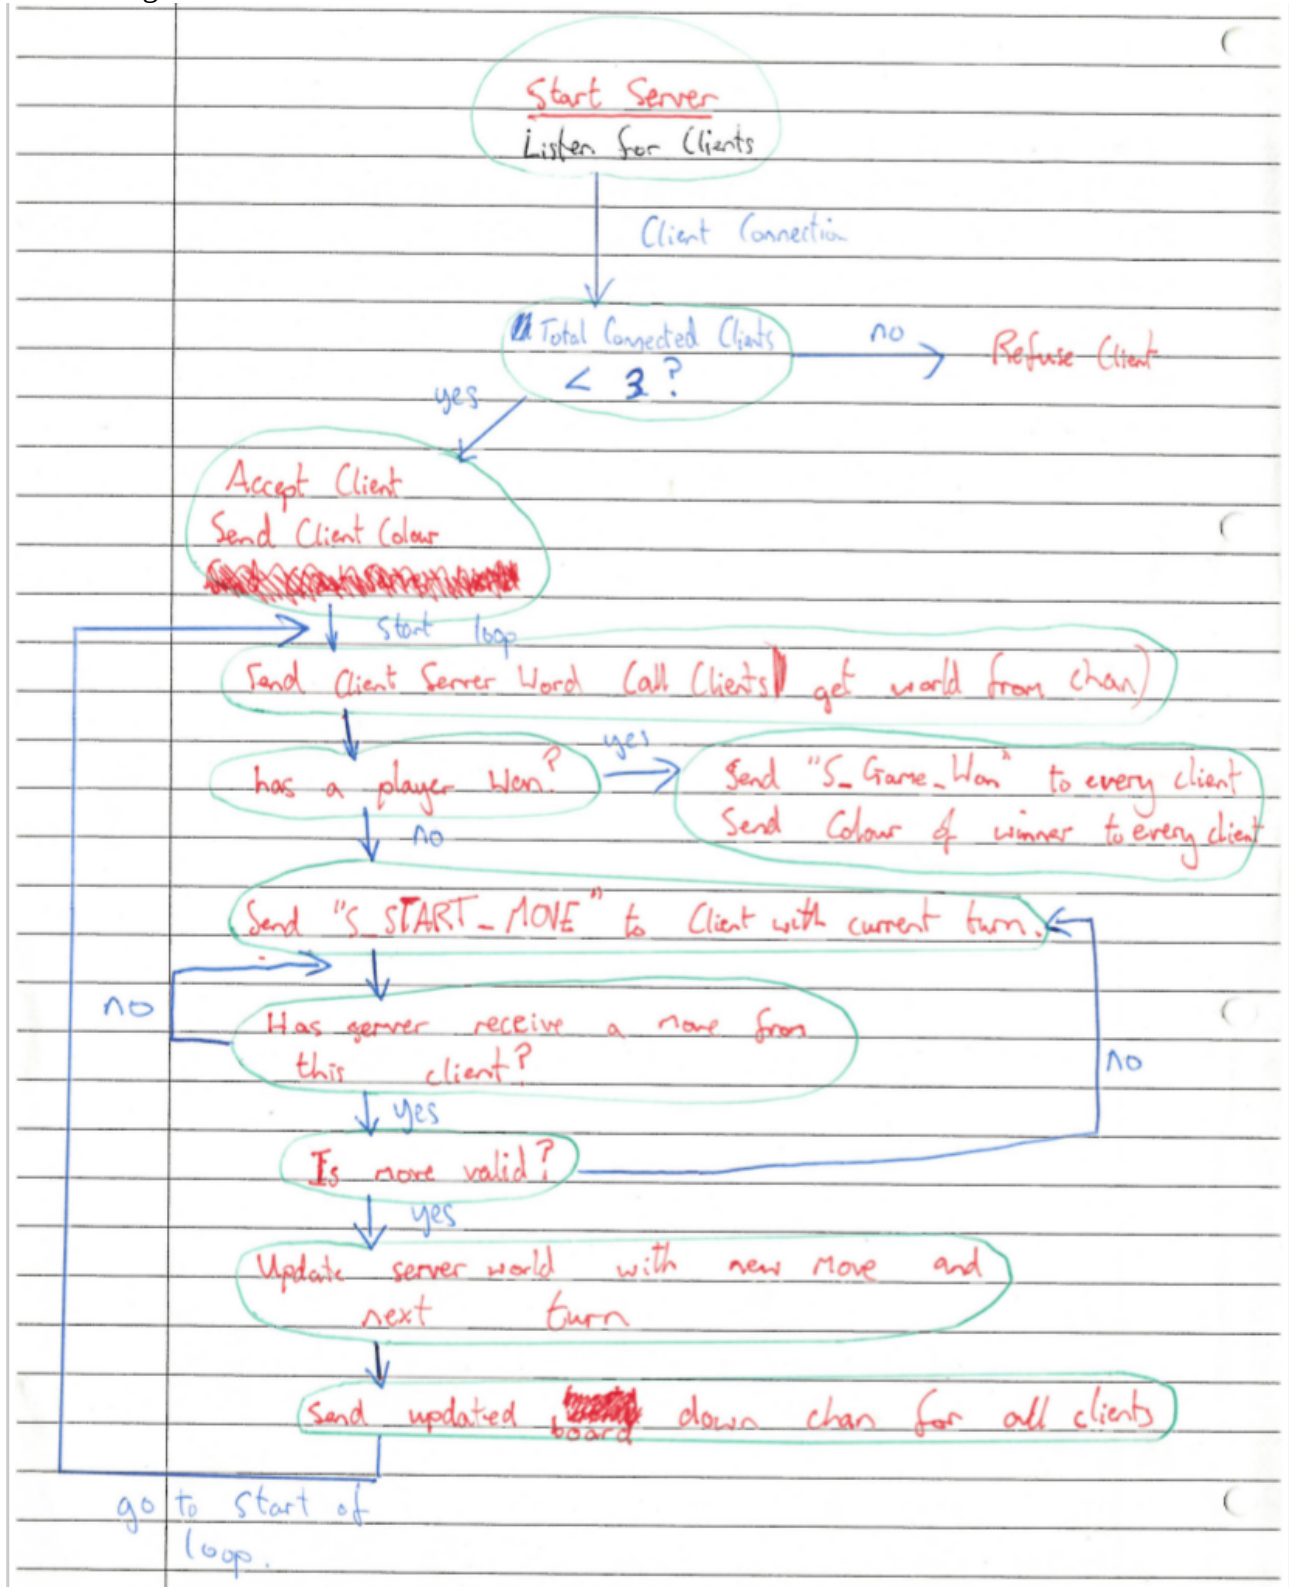 Start Server
Listen for Clients
Client Connection
Total Connected Clients
< 3 ?
no
Refuse Client
yes
Accept Client
Send Client Colour
start loop
Send Client Server Word (all Clients get world from chan)
has a player Won?
yes
Send "S_Game_Won" to every client
Send Colour of winner to every client
no
Send "S_START_MOVE" to Client with current turn.
no
Has server receive a move from
this client?
no
yes
Is move valid?
yes
Update server world with new move and
next turn
Send updated board down chan for all clients
go to start of
loop.